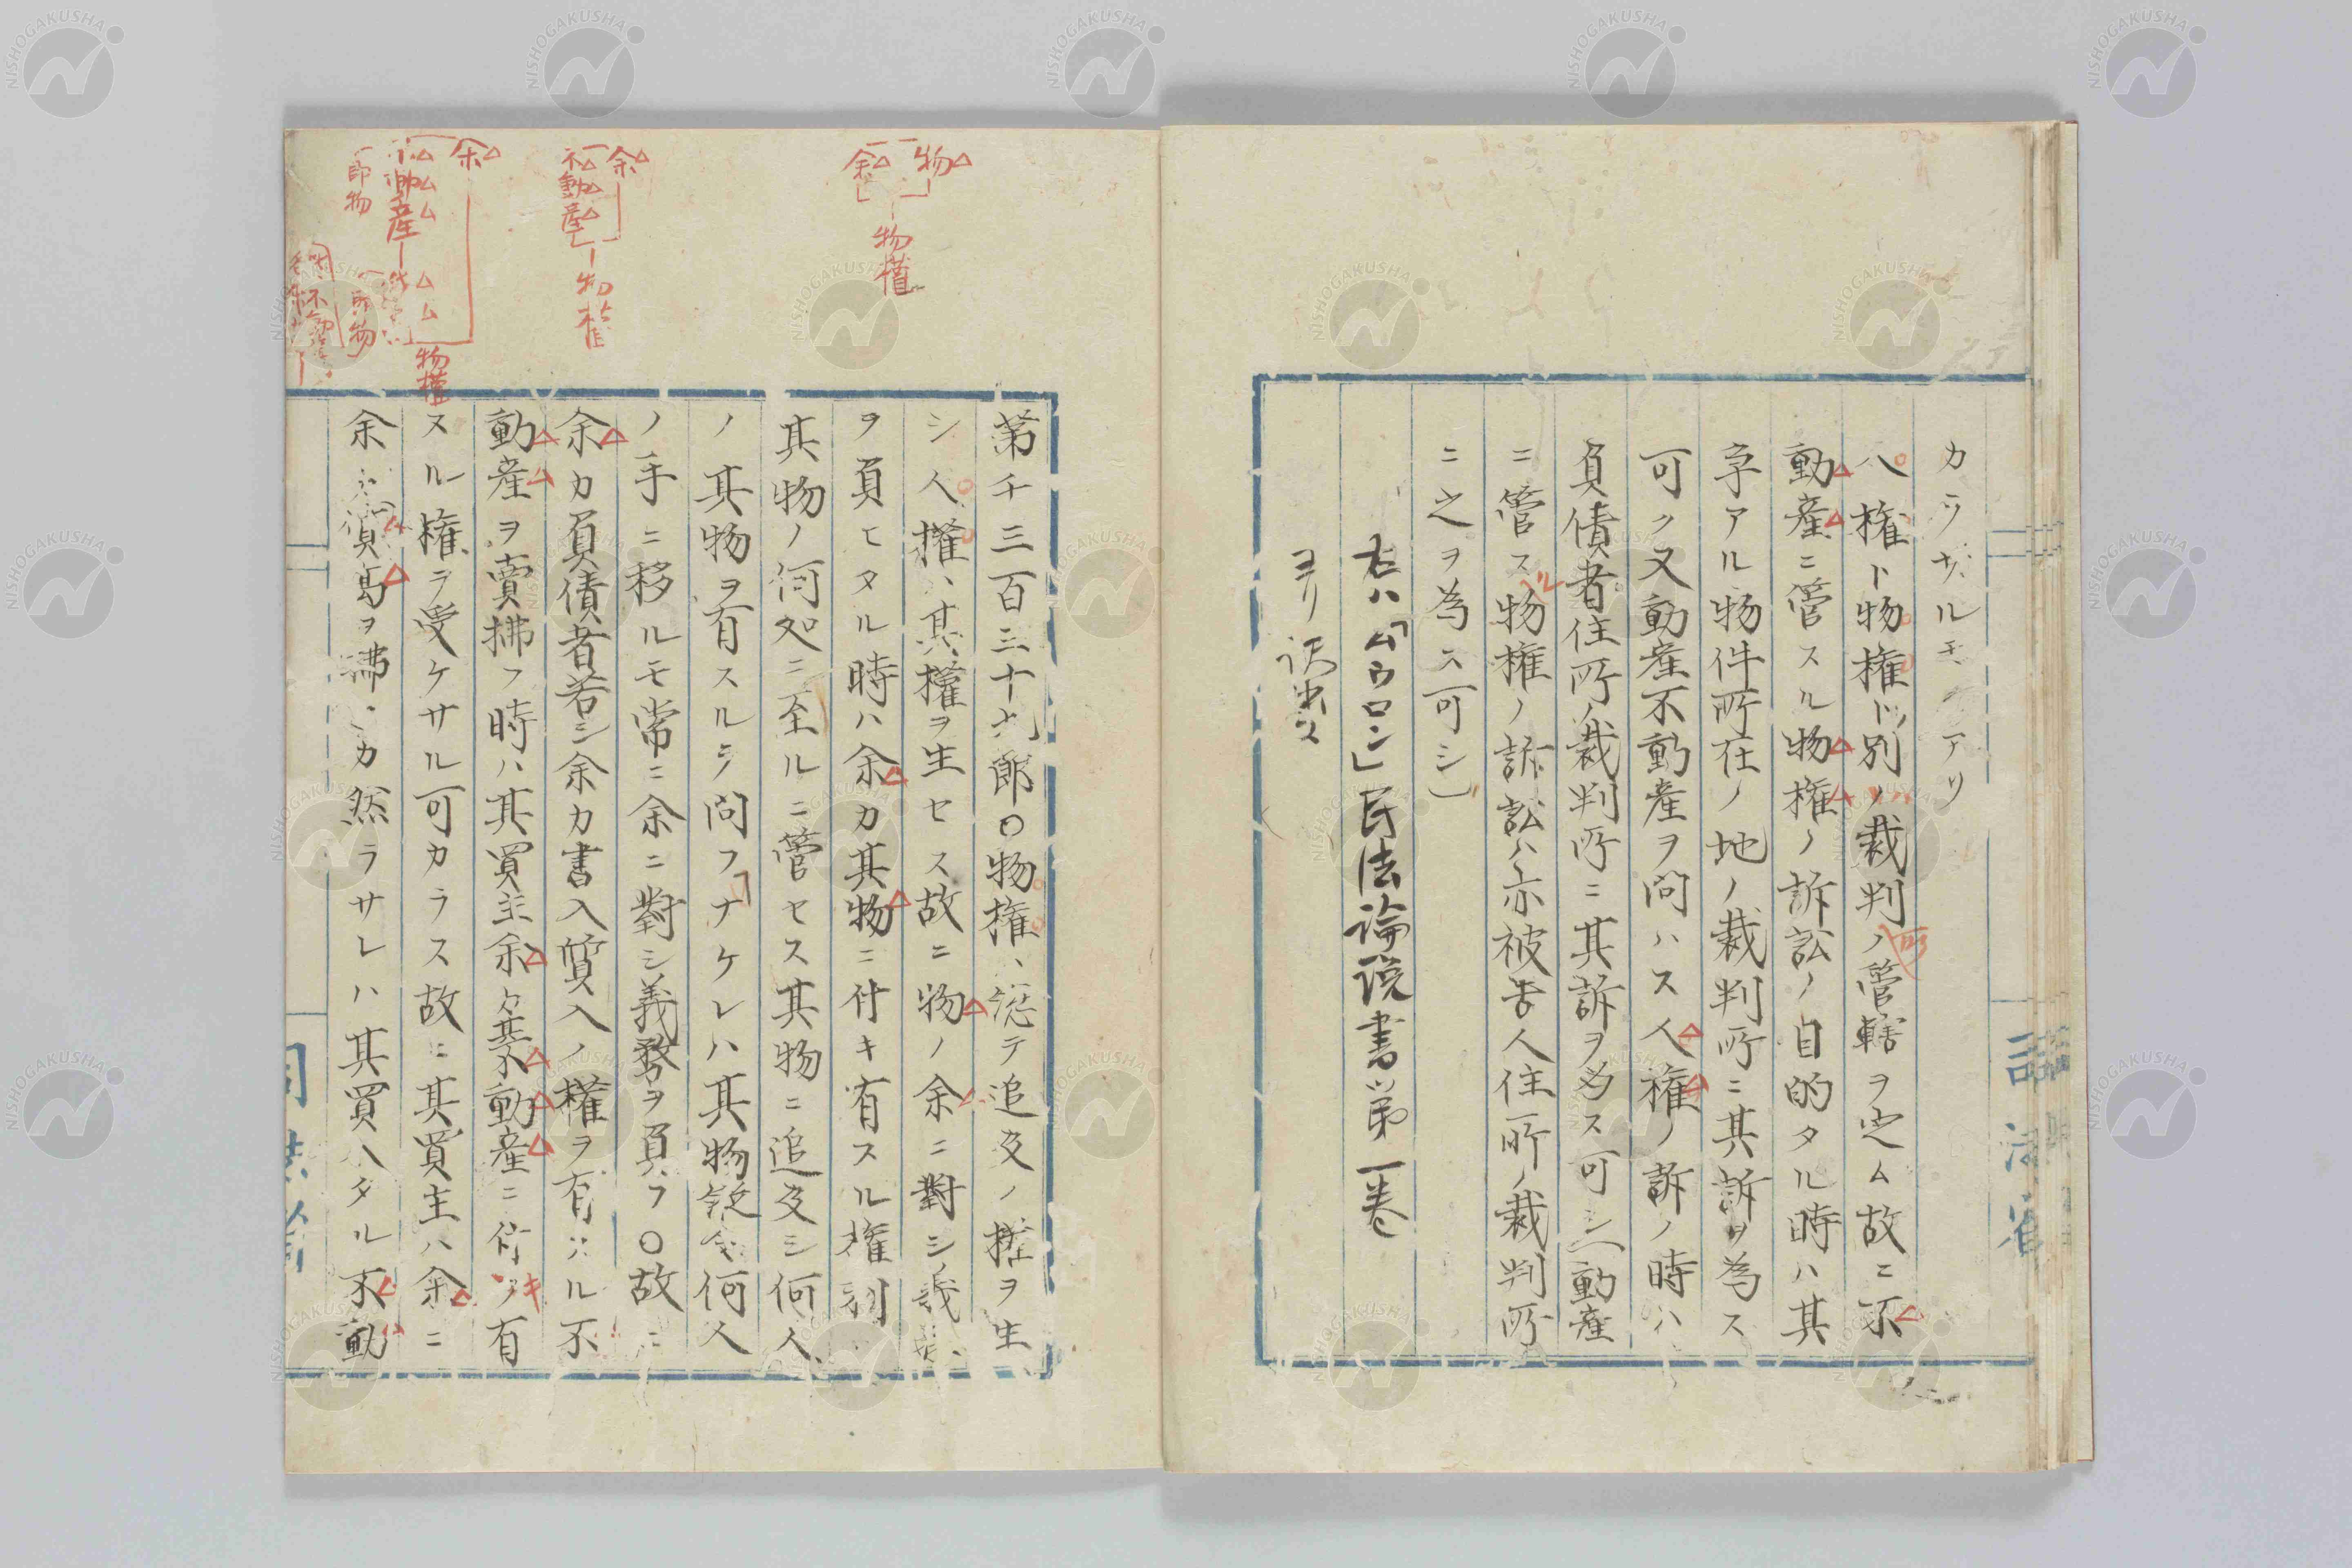 カラサルモノアリ
人権ト物権ト別ノ裁判ノ管轄ヲ定ム故ニ不
動産ニ管スル物権ノ訴訟ノ目的タル時ハ其
争アル物件所在ノ地ノ裁判所ニ其訴ヲ為ス
可ク又動産不動産ヲ問ハス人権ノ訴ノ時ハ
負債者住所ノ裁判所ニ其訴ヲ為ス可シ動産
ニ管ス物権ノ訴訟ハ亦被告人住所ノ裁判所
ニ之ヲ為ス可シ」
右ハ「ムウロン」民法論説書第一巻
ヨリ訳出ス
司法省
物
余
物権
余
不動産
物権
余
不動産
物権
即物
即物
第千三百三十九郎〇物権ハ総テ追及ノ権ヲ生
シ人権ハ其権ヲ生セス故ニ物ノ余ニ對シ義務
ヲ負ヒタル時ハ余カ其物ニ付キ有スル権利ハ
其物ノ何処ニ至ルニ管セス其物ニ追及シ何人
ノ其物ヲ有スルヲ問フナケレハ其物縦令何人
ノ手ニ移ルモ常ニ余ニ對シ義務ヲ負フ〇故ニ
余カ負債者若シ余カ書入質入ノ権ヲ有スル不
動産ヲ賣拂フ時ハ其買主余カ其不動産ニ付キ有
スル権ヲ受ケサル可カラス故ニ其買主ハ余ニ
余ノ償員ヲ拂フカ然ラサレハ其買入タル不動